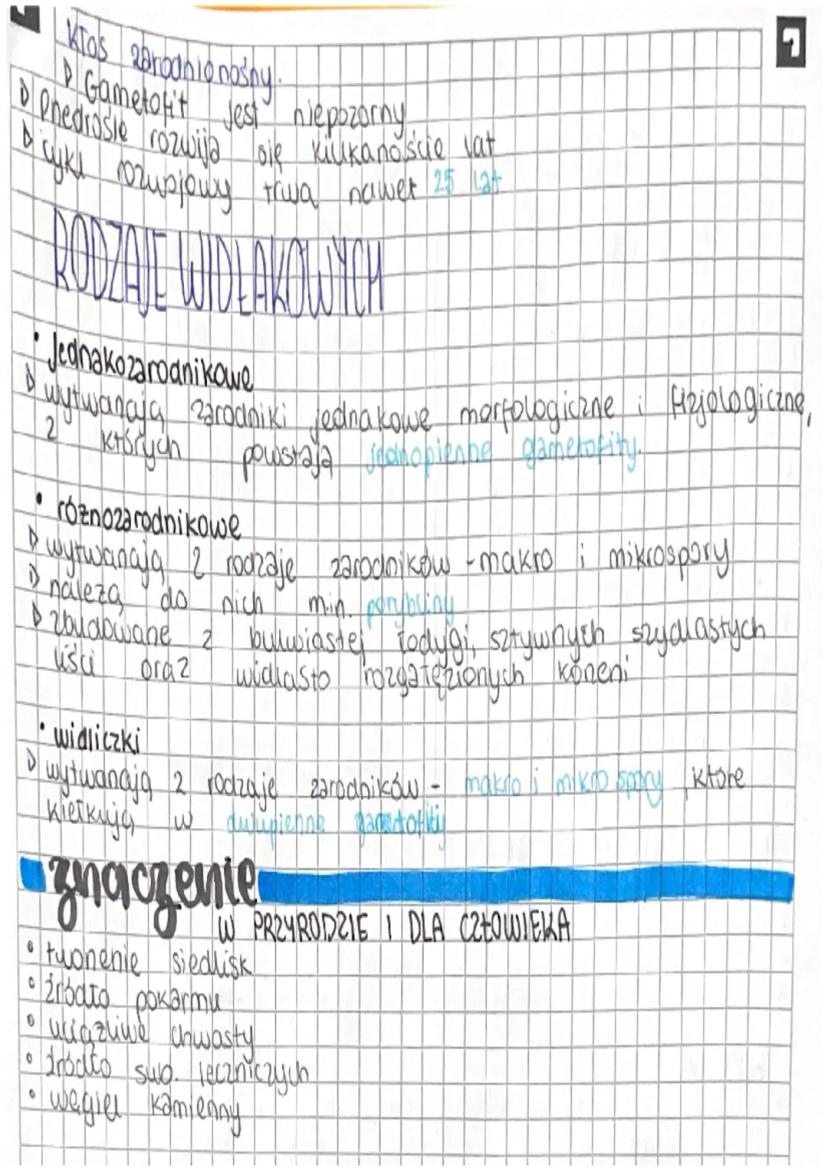 kłos zarodnionośny.
▷ Gametofit jest niepozorny
▷ Phedrośle rozwija się kilkanoście lat
▷ cykl rozwojowy trwa nawet 25 lat
RODZAJE WIDŁAKOWYCH
• Jednakozarodnikowe
▷ wytwarzają zarodniki jednakowe morfologiczne i fizjologiczne,
z których powstają jednopienne gametofity.
• różnozarodnikowe
▷ wytwarzają 2 rodzaje zarodników - makro i mikrospory
▷ należą do nich m.in. porybliny
▷ zbudowane z bulwiastej łodygi, sztywnych szydlastych
liści oraz widlasto rozgałęzionych korzeni
• widliczki
▷ wytwarzają 2 rodzaje zarodników - makro i mikro spory, które
kiełkują w dwupienne gametofity
znaczenie
W PRZYRODZIE I DLA CZŁOWIEKA
• tworzenie siedlisk
• źródło pokarmu
• uciążliwe chwasty
• źródło sub. leczniczych
• węgiel kamienny